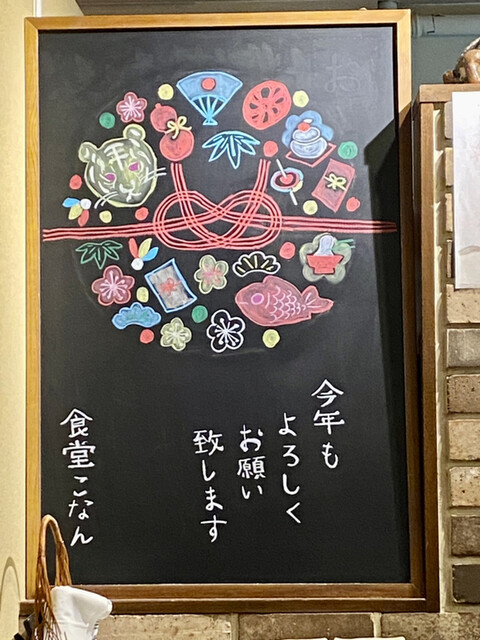 今年も
よろしく
お願い
致します
食堂こなん